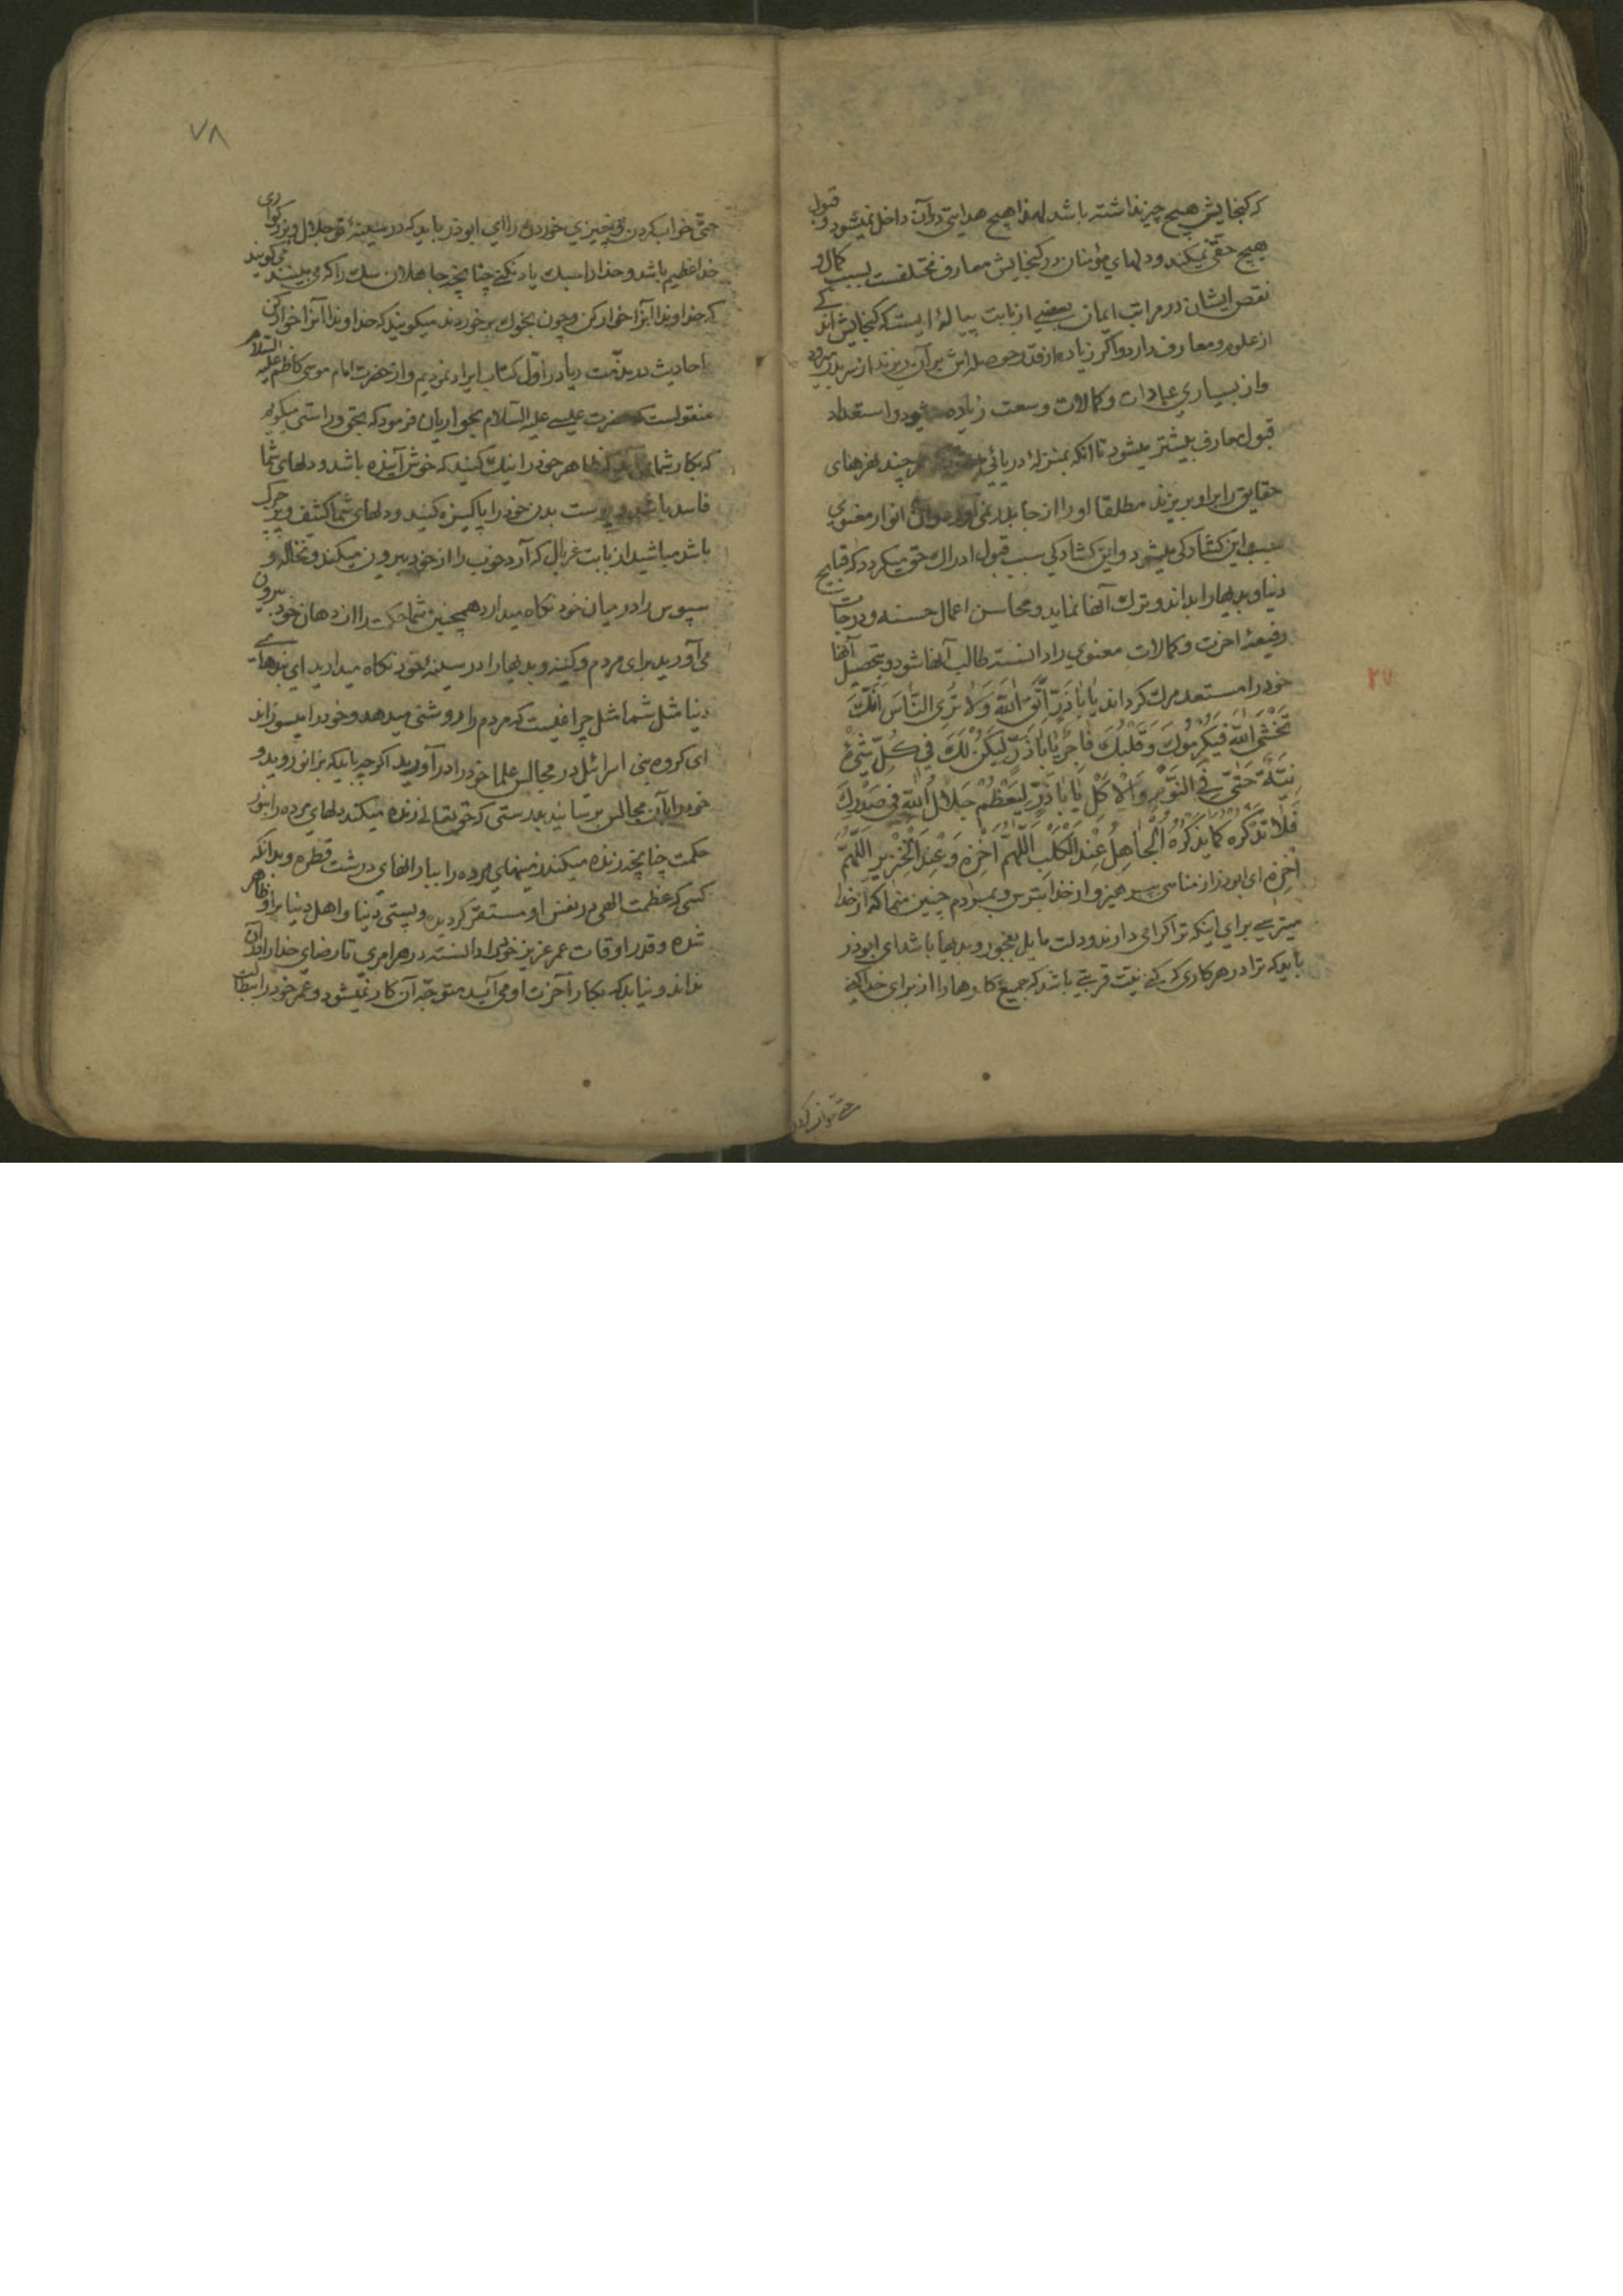 که گنجایش هیچ چیز نداشته باشد لهذا هیچ هدایتی در آن داخل نمیشود و قبول
هیچ حقی نمیکند و دلهای مؤمنان در گنجایش معارف مختلفست بسبب کمال و
نقص ایشان در مراتب ایمان بعضی از بابت پیالهٔ ایست که گنجایش اندکی
از علوم و معارف دارد و اگر زیاده از قدر حوصله‌اش بر آن ریزند از سر بدر میرود
و از بسیاری عبادات و کمالات وسعت زیاده میشود و استعداد
قبول معارف بیشتر میشود تا آنکه بمنزلهٔ دریائی هر چند نهرهای
حقایق را بر او بریزند مطلقا او را از جا بدر نمی‌آورد و انوار معنوی
سبب این گشادگی میشود و این گشادگی سبب قبول ادراک حق میگردد که قبایح
دنیا و بدیها را بداند و ترک آنها نماید و محاسن اعمال حسنه و درجات
رفیعهٔ آخرت و کمالات معنوی را دانسته طالب آنها شود و بتحصیل آنها
خود را مستعد مرگ گرداند یٰا أَبٰا ذَرّ اِتَّقِ اللّٰهَ وَلٰا تُرِی النّٰاسَ أَنَّكَ
تَخْشَی اللّٰهَ فَیُكْرِمُوكَ وَقَلْبُكَ فٰاجِرٌ یٰا أَبٰا ذَرٍّ لِیَكُنْ لَكَ فِی كُلِّ شَیْءٍ
نِیَّةٌ حَتّٰی فِی النَّوْمِ وَالْاَكْلِ یٰا أَبٰا ذَرٍّ لِیَعْظُمْ جَلٰالُ اللّٰهِ فِی صَدْرِكَ
فَلٰا تَذْكُرْهُ كَمٰا یَذْكُرُهُ الْجٰاهِلُ عِنْدَ الْكَلْبِ اَللّٰهُمَّ اَخْزِهِ وَعِنْدَ الْخِنْزِیرِ اَللّٰهُمَّ
اَخْزِهِ ای ابوذر از مناهی بپرهیز و از خدا بترس و بمردم چنین منما که از خدا
میترسی برای اینکه ترا گرامی دارند و دلت مایل بفجور و بدیها باشد ای ابوذر
باید که ترا در هر کاری که کنی نیت قربتی باشد که جمیع کارها را از برای خدا کنی
حتی خواب کردن
۷۸
حتی خواب کردن و چیزی خوردن را ای ابوذر باید که در سینهٔ تو جلال و بزرگواری
خدا عظیم باشد و خدا را سبک یاد نکنی چنانچه جاهلان سگ را که می‌بینند میگویند
که خداوندا آنرا خوار کن و چون بخوک بر خوردند میگویند که خداوندا آنرا خوار کن
احادیث در مذمت ریا در اول کتاب ایراد نمودیم و از حضرت امام موسی کاظم علیه السلام
منقولست که حضرت عیسی علیه السلام بحواریان فرمود که بحق و راستی میگویم
که بکار شما نمی‌آید که ظاهر خود را نیک کنید که خوش آینده باشد و دلهای شما
فاسد باشد و پوست بدن خود را پاکیزه کنید و دلهای شما کثیف و پر چرک
باشد مباشید از بابت غربال که آرد خوب را از خود بیرون میکند و نخاله و
سپوس را در میان خود نگاه میدارد همچنین شما حکمت را از دهان خود بیرون
می‌آورید برای مردم و کینه و بدیها را در سینهٔ خود نگاه میدارید ای بندهای
دنیا مثل شما مثل چراغیست که مردم را روشنی میدهد و خود را میسوزاند
ای گروه بنی اسرائل در مجالس علما خود را در آورید اگر چه باید که بزانو روید و
خود را بآن مجالس برسانید بدرستی که حق تعالی زنده میکند دلهای مرده را بنور
حکمت چنانچه زنده میکند زمینهای مرده را ببارانهای درشت قطره و بدانکه
کسی که عظمت الهی در نفس او مستقر گردیده و پستی دنیا و اهل دنیا بر او ظاهر
شده و قدر اوقات عمر عزیز خود را دانسته در هر امری تا رضای خدا را در آن
نداند و نیابد که بکار آخرت او می‌آید متوجه آن کار نمیشود و عمر خود را ببطالت